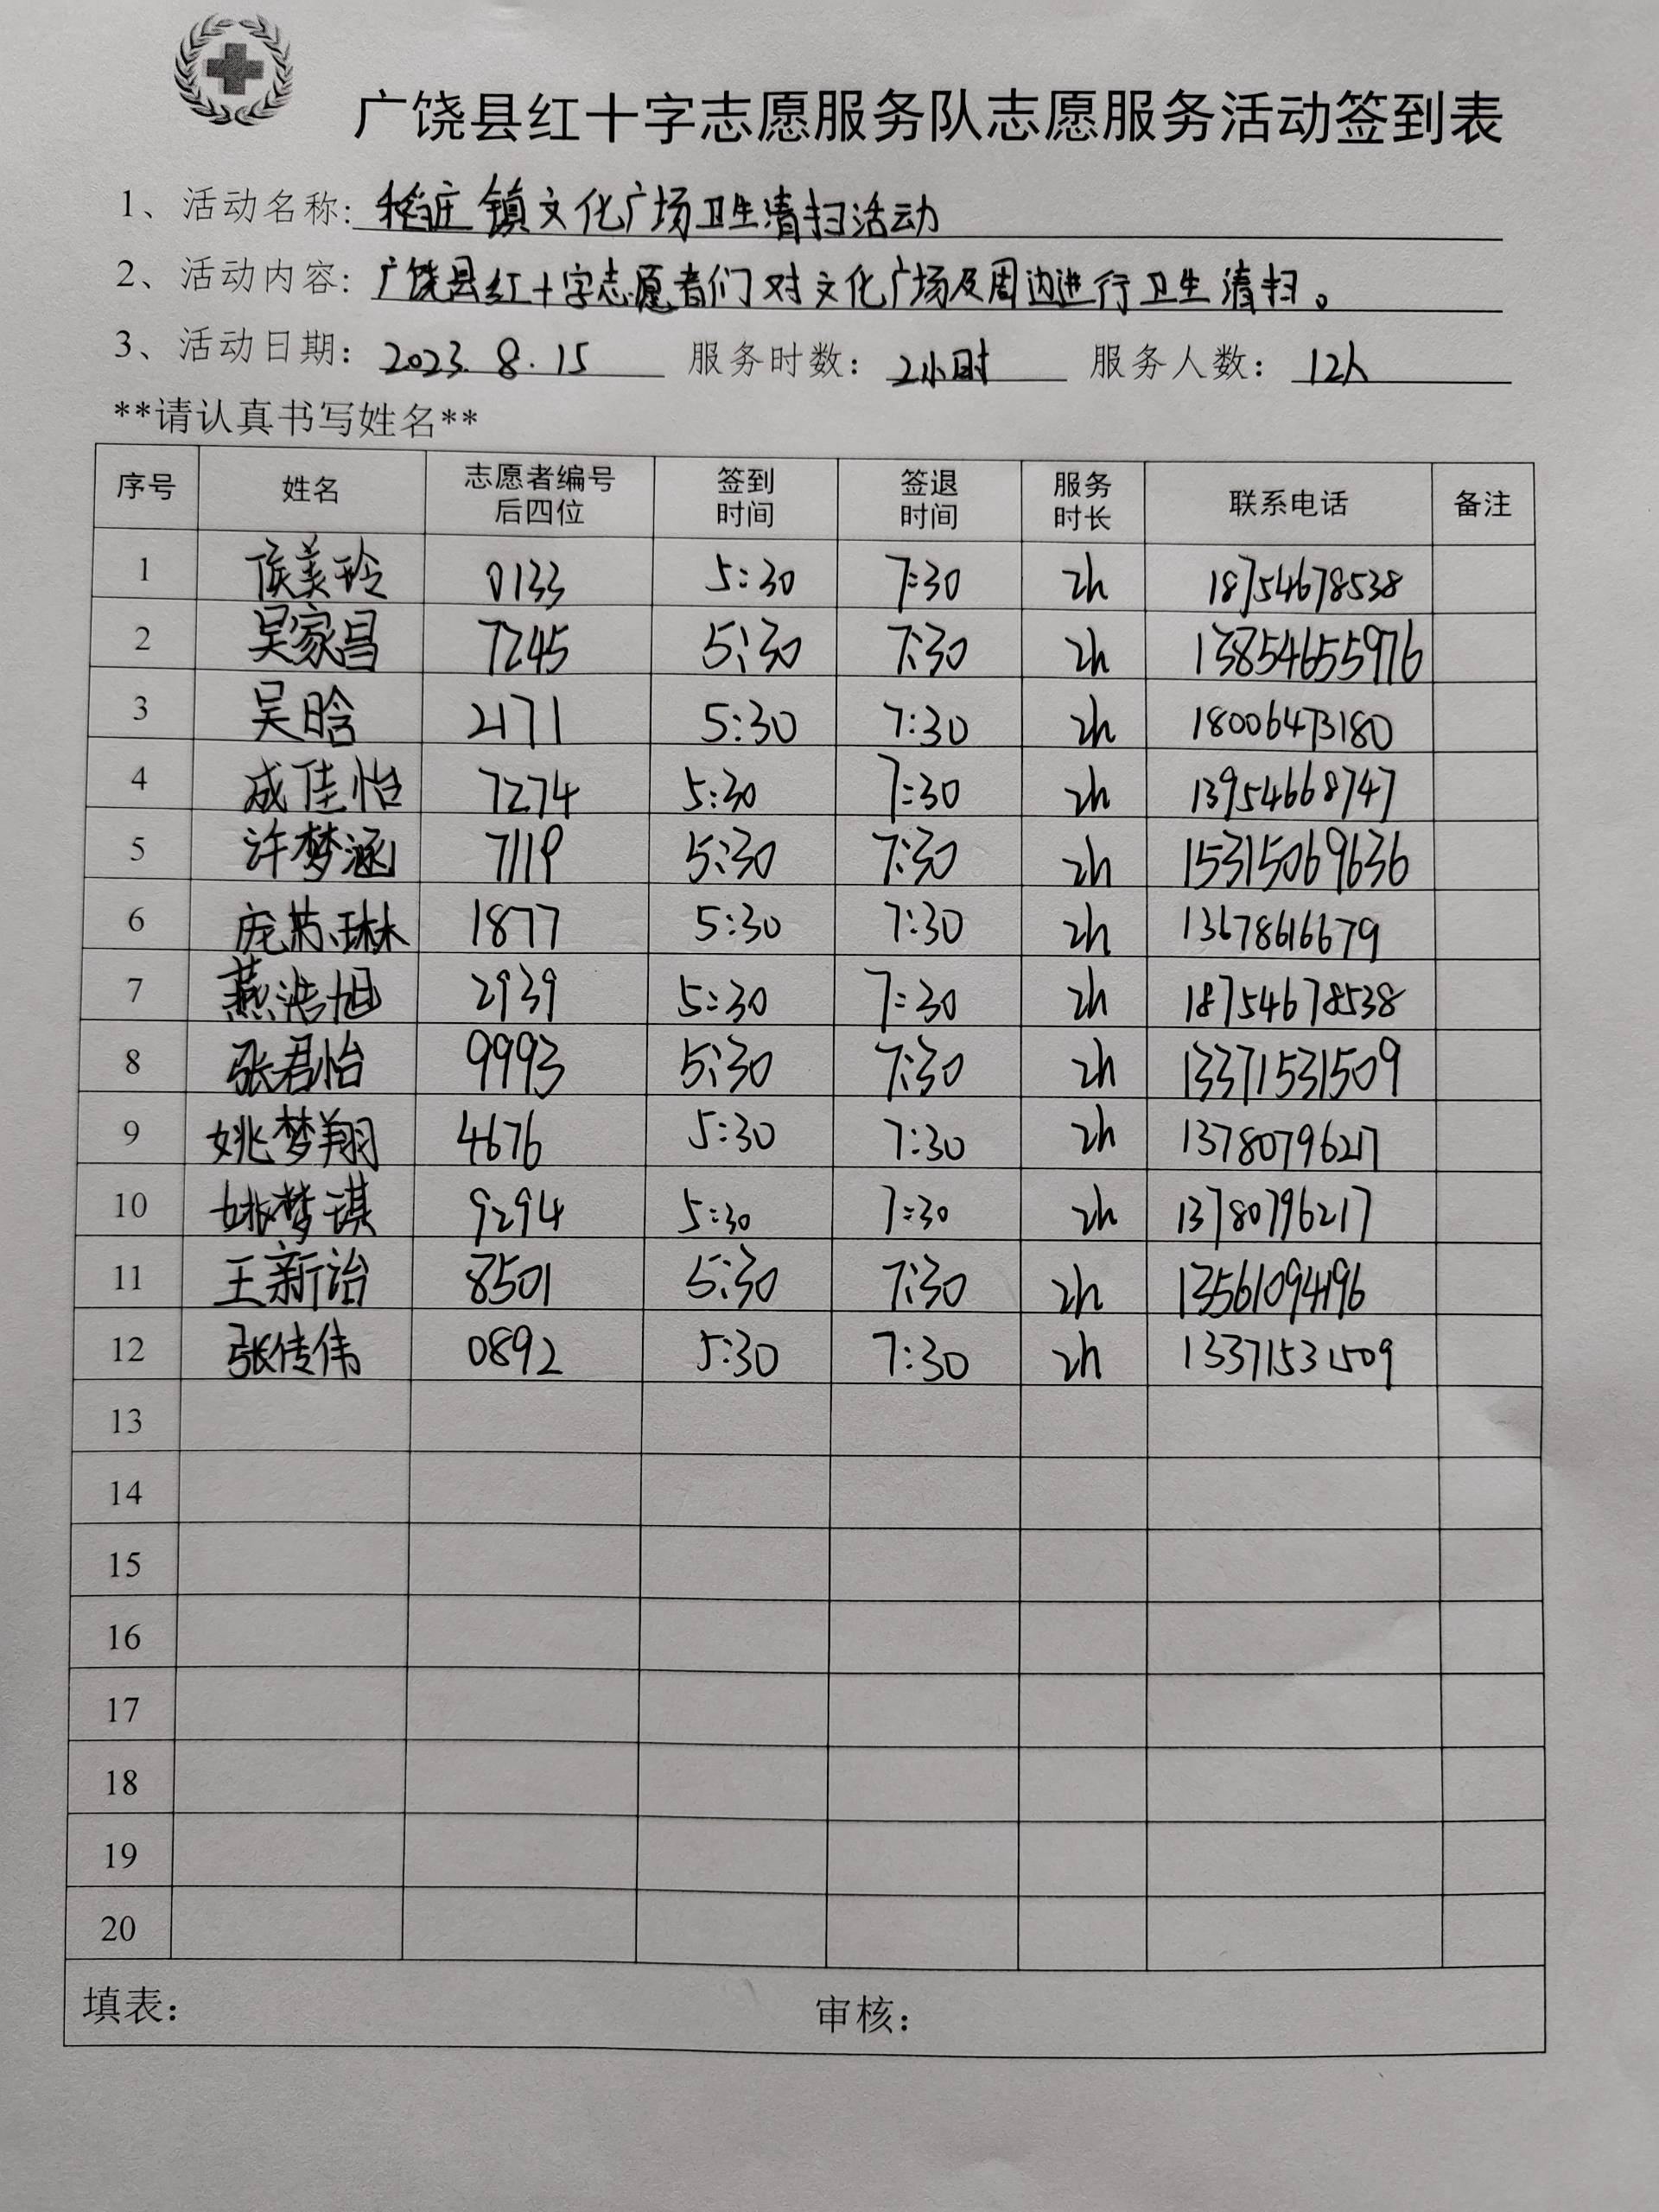 广饶县红十字志愿服务队志愿服务活动签到表
1、活动名称: 稻庄镇文化广场卫生清扫活动
2、活动内容: 广饶县红十字志愿者们对文化广场及周边进行卫生清扫。
3、活动日期: 2023.8.15 服务时数: 2小时 服务人数: 12人
**请认真书写姓名**
序号 姓名 志愿者编号后四位 签到时间 签退时间 服务时长 联系电话 备注
1 侯美玲 0133 5:30 7:30 2h 18754678538
2 吴家昌 7245 5:30 7:30 2h 13854655976
3 吴晗 2171 5:30 7:30 2h 18006473180
4 成佳怡 7274 5:30 7:30 2h 13954668747
5 许梦涵 7119 5:30 7:30 2h 15315069636
6 庞 琳 1877 5:30 7:30 2h 13678616679
7 燕浩旭 2939 5:30 7:30 2h 18754678538
8 张君怡 9993 5:30 7:30 2h 13371531509
9 姚梦翔 4676 5:30 7:30 2h 13780796217
10 姚梦琪 9294 5:30 7:30 2h 13780796217
11 王新诒 8501 5:30 7:30 2h 13561094196
12 张传伟 0892 5:30 7:30 2h 13371531509
13
14
15
16
17
18
19
20
填表: 审核: